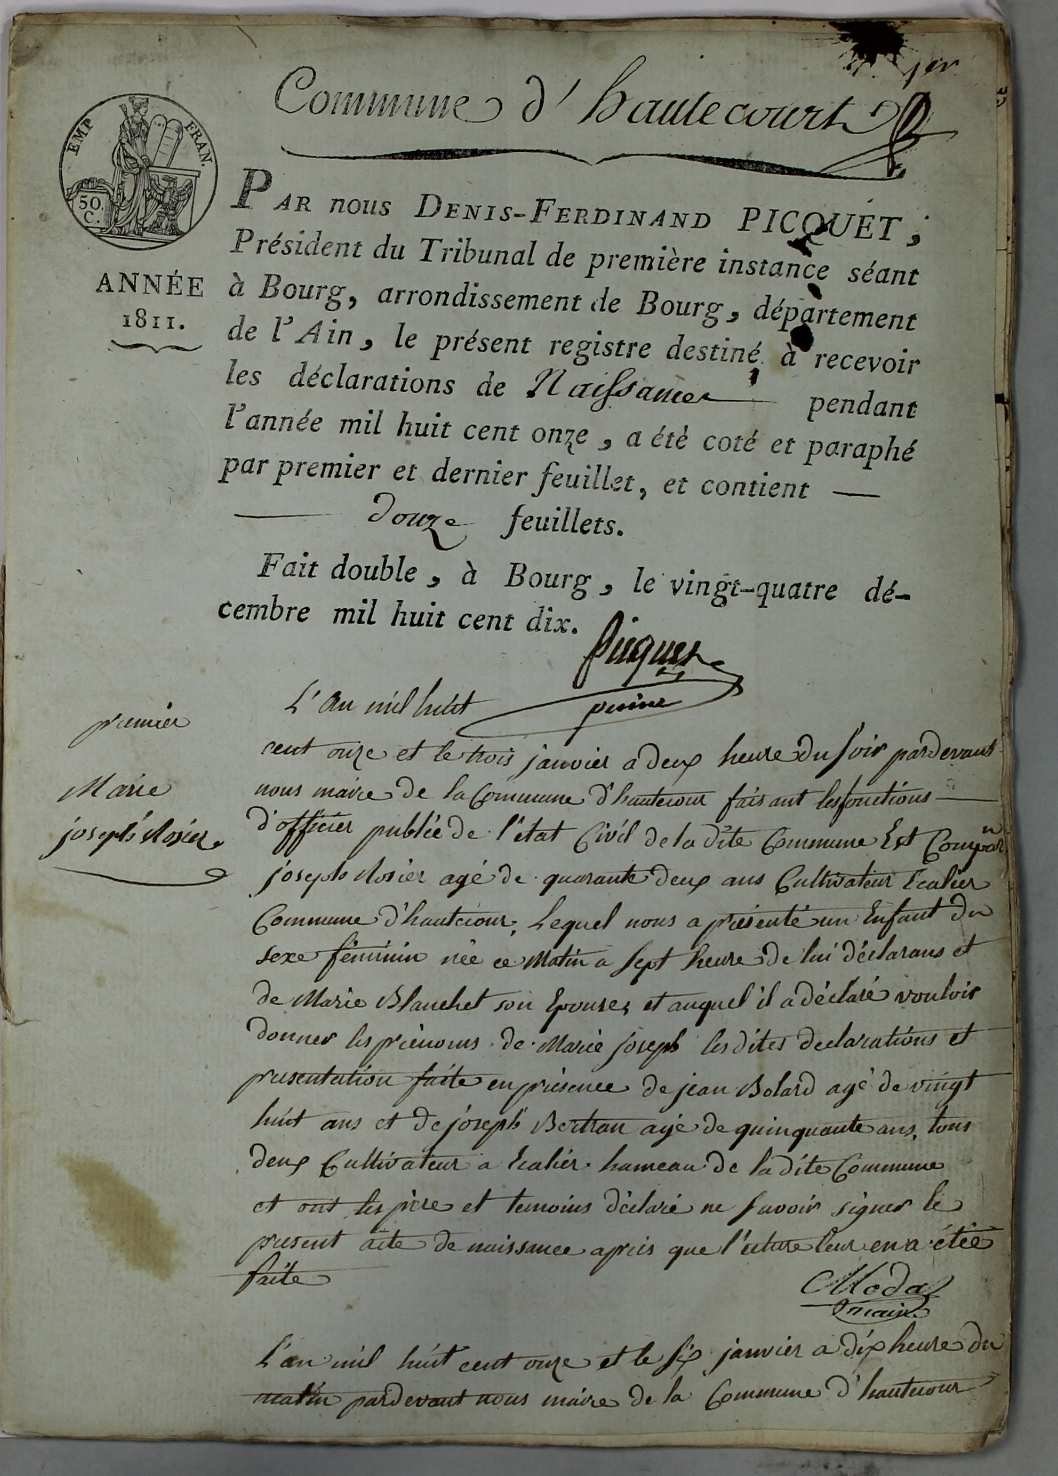 1er
Commune d'hautecourt
EMP FRAN.
50.
C.
ANNÉE
1811.
PAR nous DENIS-FERDINAND PICQUET,
Président du Tribunal de première instance séant
à Bourg, arrondissement de Bourg, département
de l'Ain, le présent registre destiné à recevoir
les déclarations de Naissances pendant
l'année mil huit cent onze, a été coté et paraphé
par premier et dernier feuillet, et contient —
— douze feuillets.
Fait double, à Bourg, le vingt-quatre dé-
cembre mil huit cent dix.
Picquet
premier
Marie
joseph Rosier
L'an mil huit
cent onze et le trois janvier a deux heure du soir pardevant
nous maire de la Commune d'hautecour faisant les fonctions —
d'officier publié de l'état Civil de la dite Commune Est Compar
joseph Rosier agé de quarante deux ans Cultivateur
Commune d'hautecour, Lequel nous a présenté un Enfant du
sexe féminin née ce Matin a sept heure de lui déclarans et
de Marie Blanchet son Epouse, et auquel il a déclaré vouloir
donner les prénoms de Marie joseph les dites declarations et
presentation faite en présence de jean Bolard agé de vingt
huit ans et de joseph agé de quinquante ans, tous
deux Cultivateur a hameau de la dite Commune
et ont les père et temoins déclaré ne savoir signer le
present acte de naissance après que l' leur en a étée
faite
maire
L'an mil huit cent onze et le six janvier a dix heure du
matin pardevant nous maire de la Commune d'hautecour